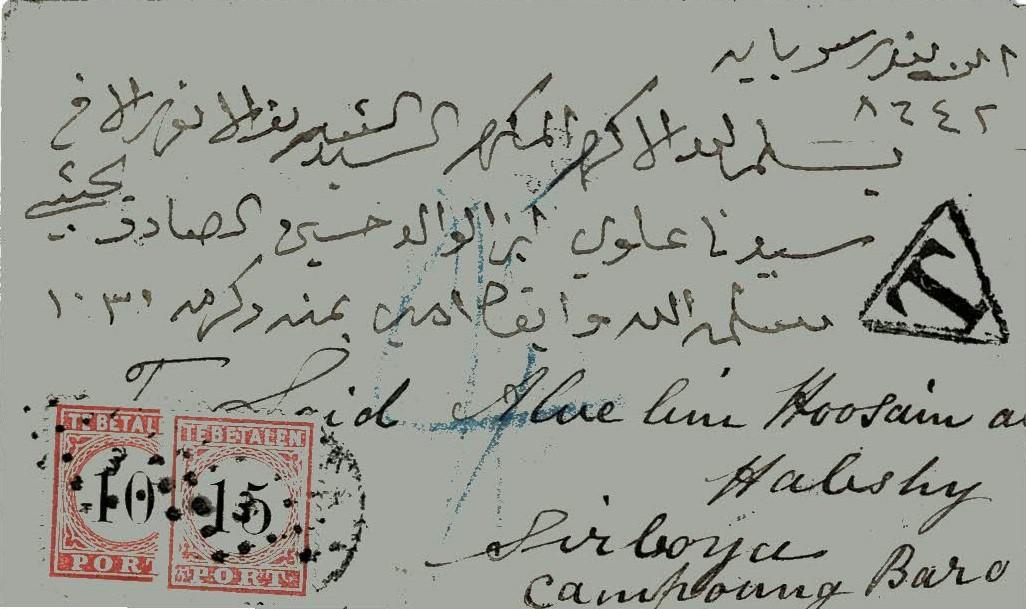 الى بندر سوربايه
٨٦٤٢
يسلم ليد الاكرم المكرم السيد الانور الاخ
سيدنا علوي ابن الوالد حسين الصادق حبشي
سلمه الله وابقا امين بمنه وكرمه
To Said Alue bin Hoosain a
Habshy
Sirboya
Campoung Baro
T
TE BETAL
10
PORT
TE BETALEN
15
PORT
4